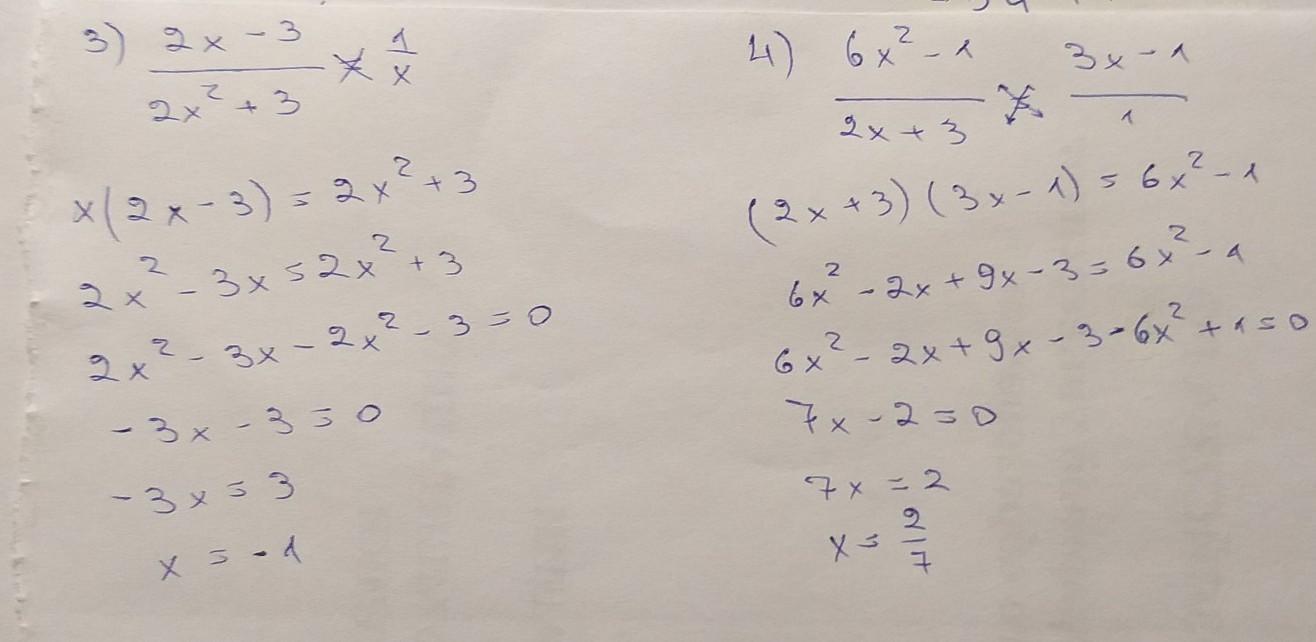 3) (2x - 3)/(2x² + 3) = 1/x
x(2x - 3) = 2x² + 3
2x² - 3x = 2x² + 3
2x² - 3x - 2x² - 3 = 0
-3x - 3 = 0
-3x = 3
x = -1
4) (6x² - 1)/(2x + 3) = (3x - 1)/1
(2x + 3)(3x - 1) = 6x² - 1
6x² - 2x + 9x - 3 = 6x² - 1
6x² - 2x + 9x - 3 - 6x² + 1 = 0
7x - 2 = 0
7x = 2
x = 2/7